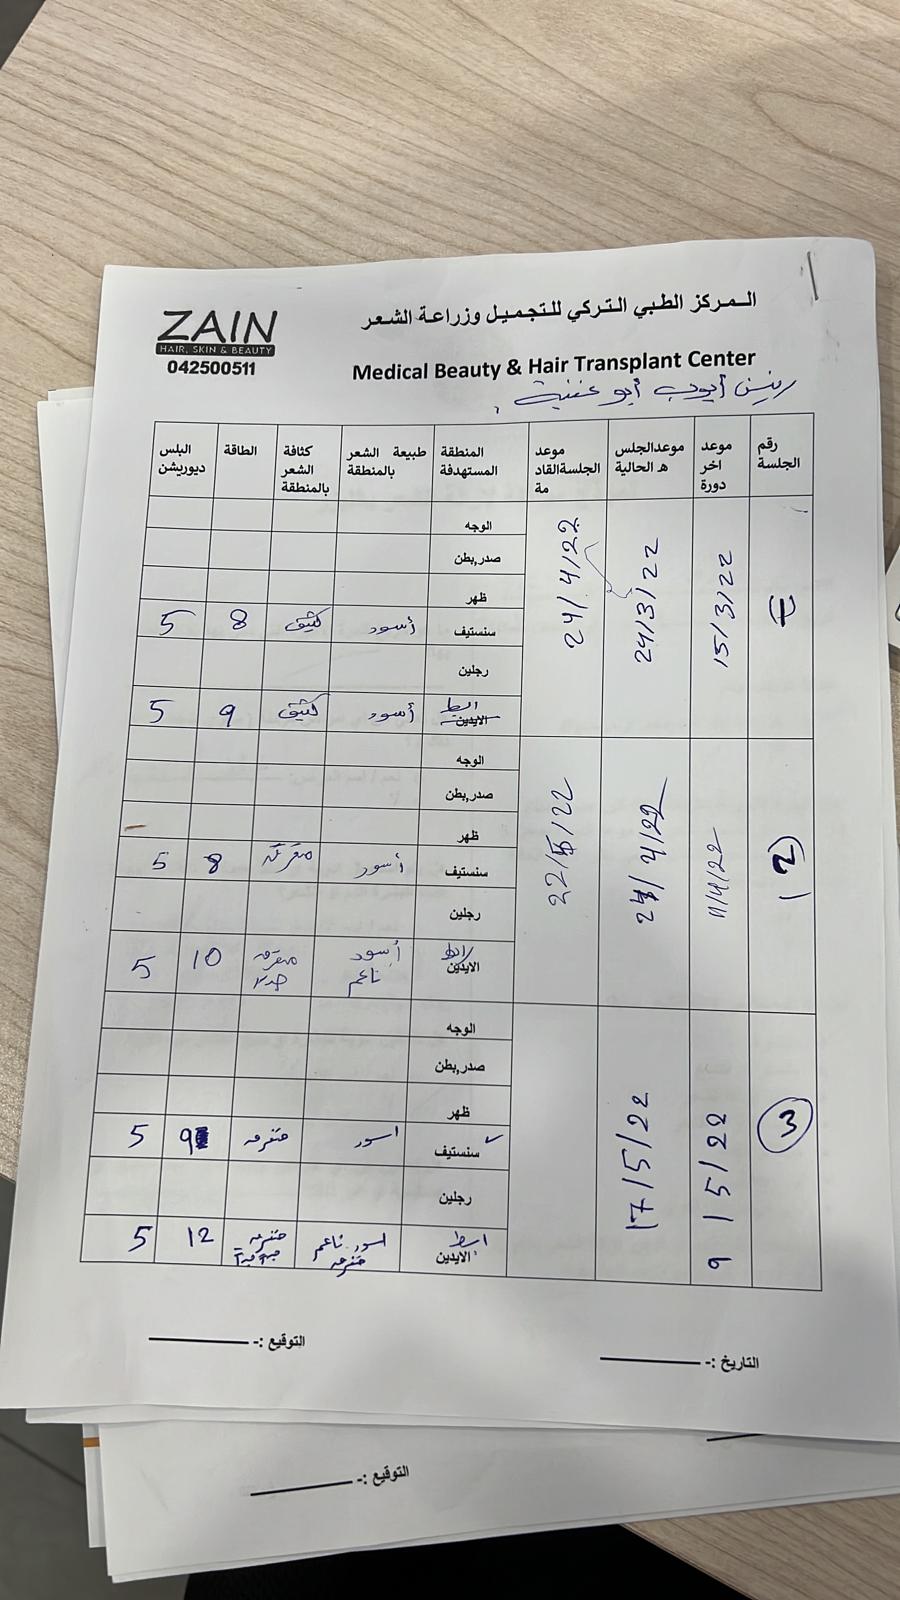 ZAIN
HAIR, SKIN & BEAUTY
042500511
المركز الطبي التركي للتجميل وزراعة الشعر
Medical Beauty & Hair Transplant Center
أيوب أبو
رقم الجلسة موعد اخر دورة موعدالجلسة الحالية موعد الجلسةالقادمة المنطقة المستهدفة طبيعة الشعر بالمنطقة كثافة الشعر بالمنطقة الطاقة البلس ديوريشن
1 15/3/22 24/3/22 24/4/22
الوجه
صدر,بطن
ظهر
سنستيف أسود كثيف 8 5
رجلين
ابط الايدين أسود كثيف 9 5
2 11/4/22 24/4/22 22/5/22
الوجه
صدر,بطن
ظهر
سنستيف أسود 8 5
رجلين
ابط الايدين أسود ناعم 10 5
3 9/5/22 17/5/22
الوجه
صدر,بطن
ظهر
سنستيف اسود متفرقه 9 5
رجلين
ابط الايدين اسود ناعم متفرقه متفرقه 12 5
التاريخ :-
التوقيع :-
التوقيع :-